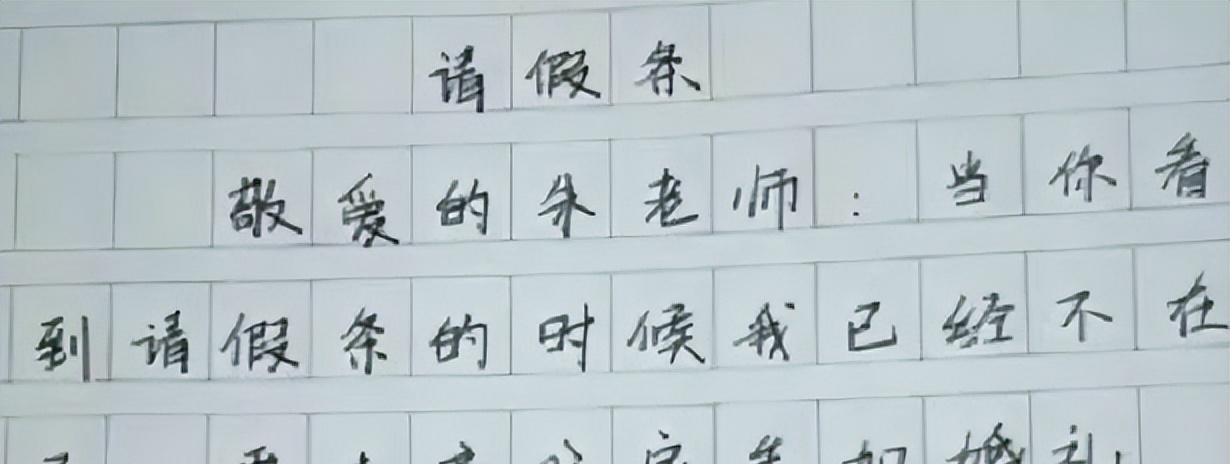 请假条
敬爱的朱老师：当你看
到请假条的时候我已经不在
加婚礼